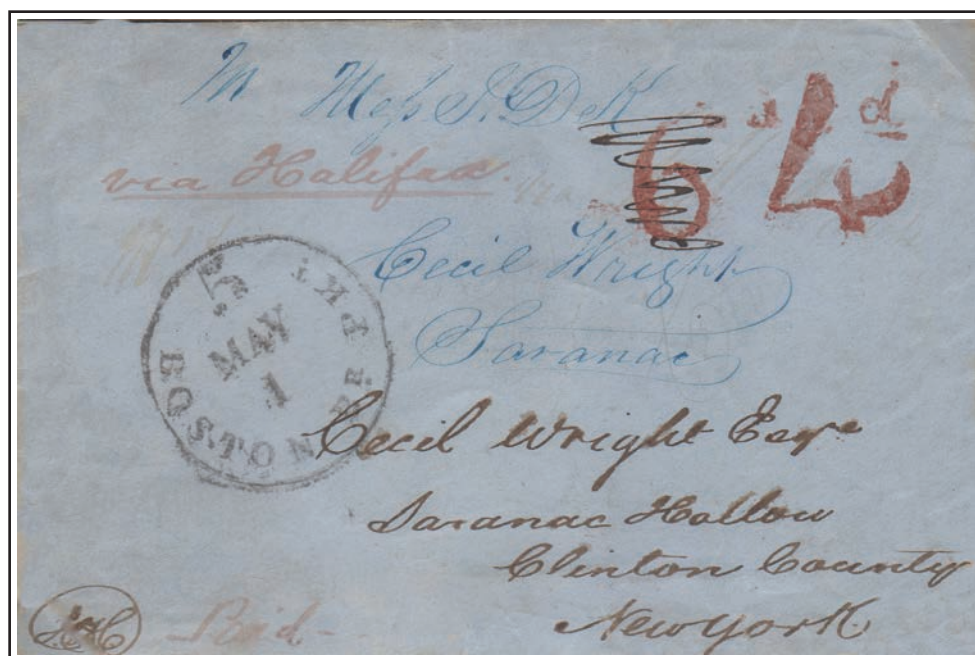 via Halifax.
6 4d
Cecil Wright
Saranac
5
BOSTON BR. PKT
MAY
1
Cecil Wright Esqre
Saranac Hollow
Clinton County
New York
Paid